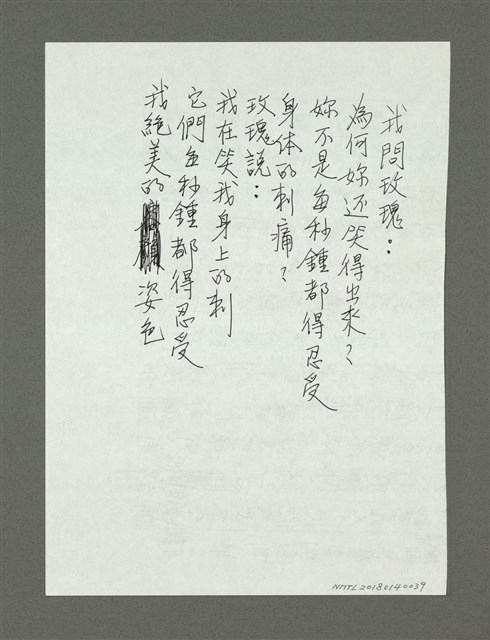 我問玫瑰：
為何妳还笑得出來？
妳不是每秒鍾都得忍受
身体的刺痛？
玫瑰說：
我在笑我身上的刺
它們每秒鍾都得忍受
我絕美的姿色
NMTL20180140039